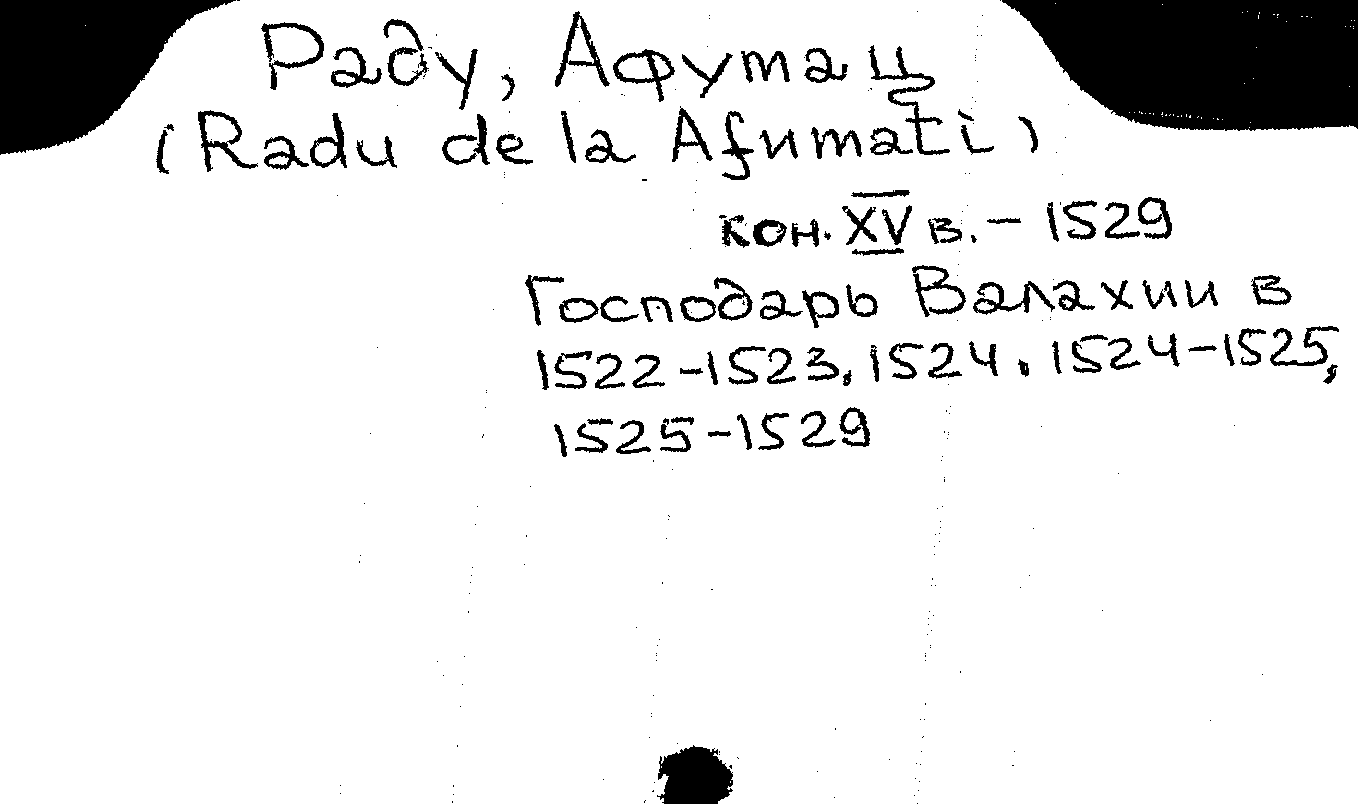 Раду, Афумац
(Radu de la Afumati)
кон. XV в. – 1529
Господарь Валахии в
1522–1523, 1524, 1524–1525,
1525–1529